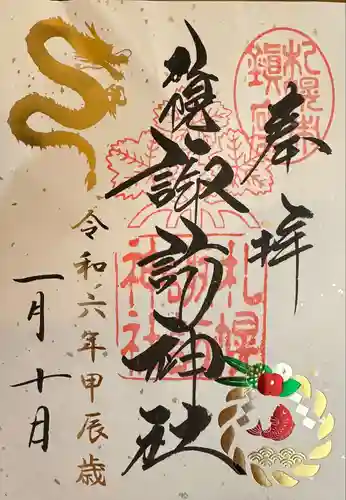 奉拝
札幌諏訪神社
札幌諏訪神社
令和六年甲辰歳
一月十日